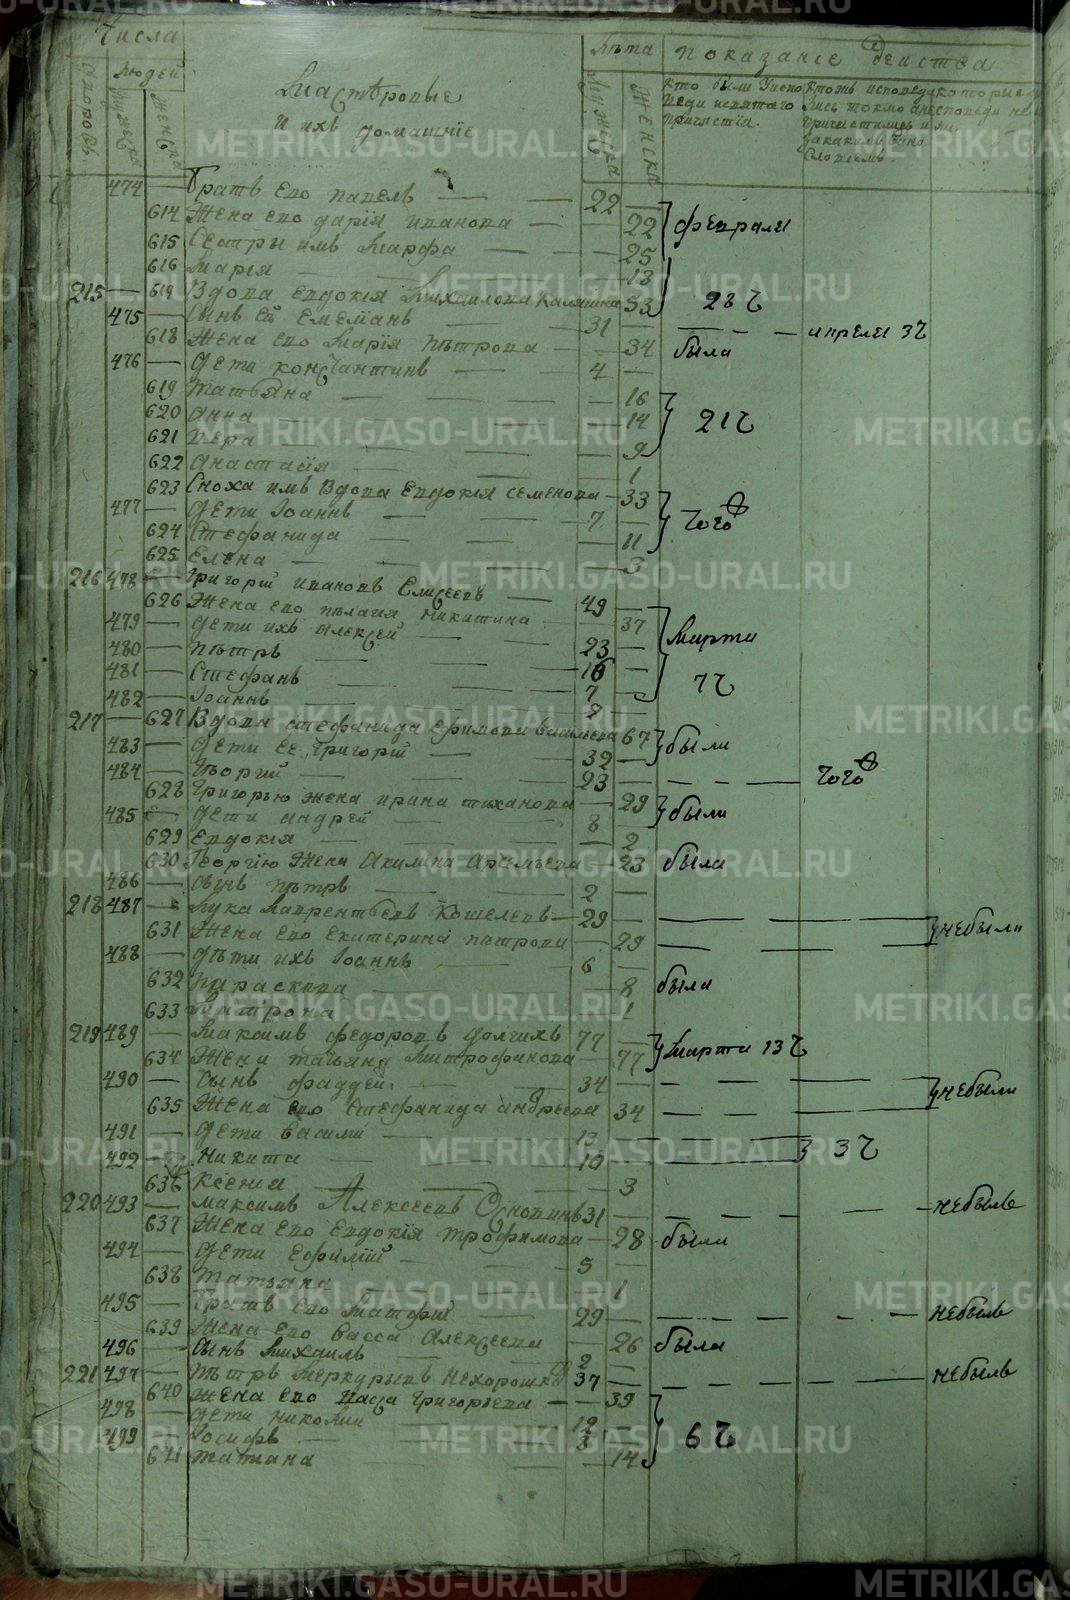 Числа
Людей
Лѣта
показанїе действа
Дворовъ
Мужеска
Женска
Мастѣровые
и ихъ домашнїе
Мужеска
Женска
кто были Уиспо
веди исвятаго
причастїя.
474 — братъ его павелъ — 22 —
614 Жена его дарїя иванова — 22
февраля
615 Сестры имъ Марфа — 25
616 Марїя — 18
215 — 619 Вдова евдокїя Михаилова калашни 53
28 Ч
475 — Сынъ ей емельянъ — 31
апреля 3ч
618 Жена его Марїя пѣтрова — 34
была
476 — дети константинъ — 4 —
619 Татьяна — 16
620 Анна — 14
21ч
621 вера — 9
622 анастасїя — 1
623 Сноха имъ вдова евдокїя семенова — 33
477 — дети Iоаннъ — 7
тогоѣ
624 Стефанида — 11
625 Елена — 3
216 478 — григорïй ивановъ Елисеевъ — 49
626 Жена его пелагия никитина — 37
479 — дети ихъ алексей — 23
Марта
480 — пѣтръ — 16
7ч
481 — Стефанъ — 7
482 — Iоаннъ — 2
217 — 627 Вдова стефанида ефимова василева 67
были
483 — дети ее григорїй — 32
484 — георгий — 23
628 Григорью жена ирина тиханова — 29
были
485 — дети андрей — 8
629 Евдокїя — 2
630 Георгїю жена Акилина Артемьева — 23
была
486 — сынъ пѣтръ — 2 —
218 487 — Лука Лаврентьевъ Кошелевъ — 29
небыли
631 Жена его екатерина петрова — 29
488 — дѣти ихъ Iоаннъ — 6
632 параскева — 8
была
633 Матрона — 1
219 489 — Максимъ федоровъ долгихъ 77
634 Жена татьяна Митрофанова — 77
Марта 13ч
490 — Сынъ фаддей — 34
небыли
635 Жена его Стефанида андреева 34
491 — дети василий — 13
492 — Никита — 10
3ч
636 Ксения — 3
220 493 — максимъ Алексеевъ Осповинъ 31
небылъ
637 Жена его евдокїя трофимова — 28
были
494 — дети ефимїй — 5
638 татьяна — 1
495 — братъ его — 29
небылъ
639 Жена его васса алексеева — 26
была
496 — Сынъ Михаилъ — 2
221 497 — пѣтръ Меркурьевъ нехорошко 37
небылъ
640 Жена его васса григорьева — 39
498 — дети николай — 12
6ч
499 — Iосифъ — 8
641 татиана — 14